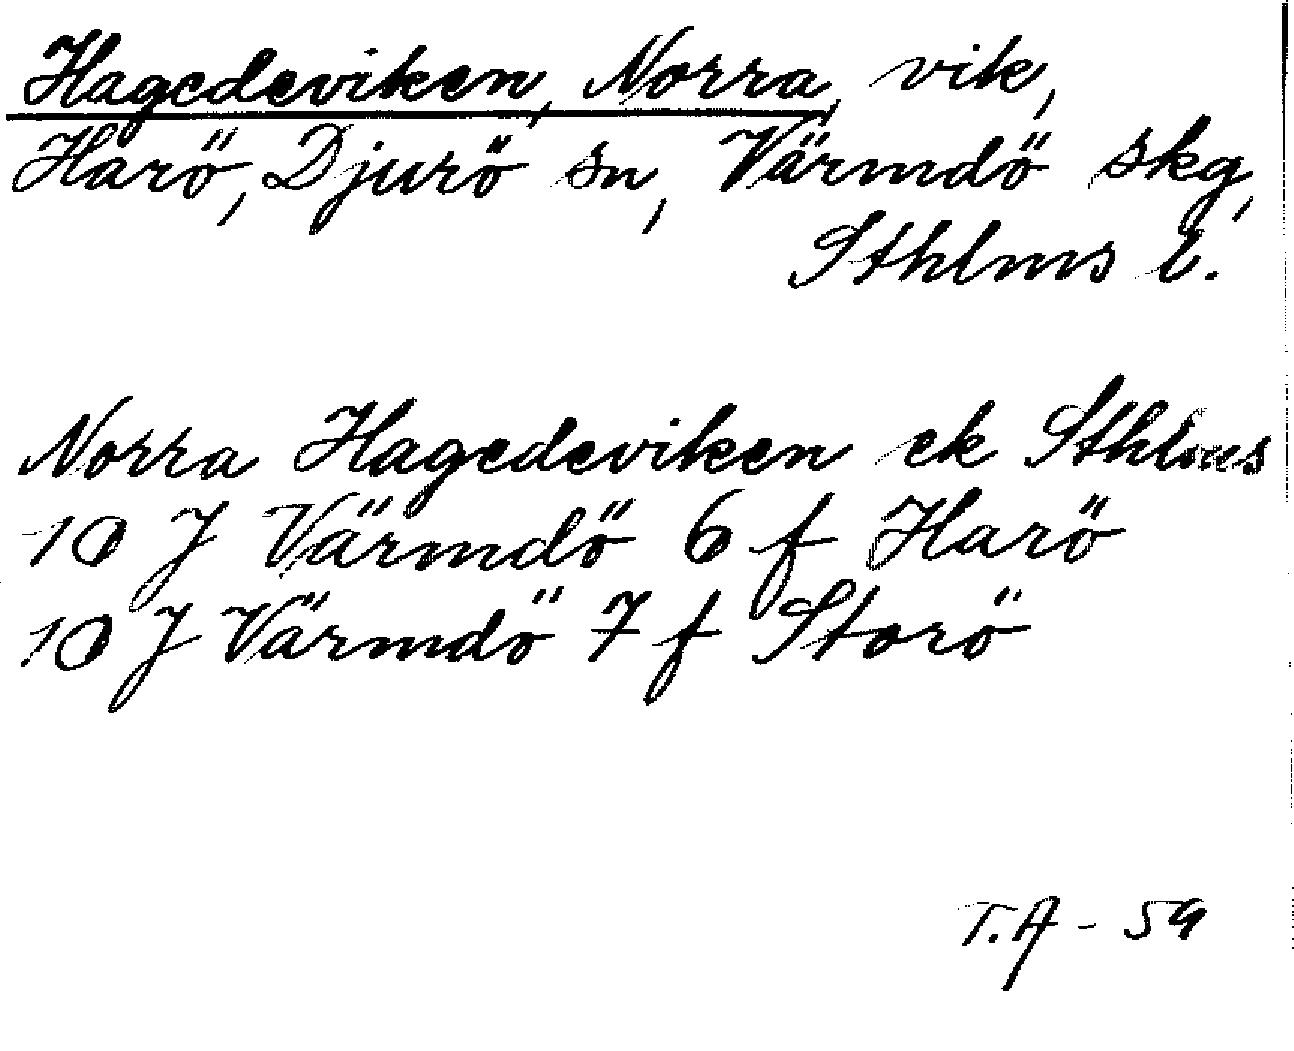 Hagedeviken, Norra, vik,
Harö, Djurö sn, Värmdö skg,
Sthlms l.
Norra Hagedeviken ek Sthlms
10 J Värmdö 6 f Harö
10 J Värmdö 7 f Storö
T.A - 59